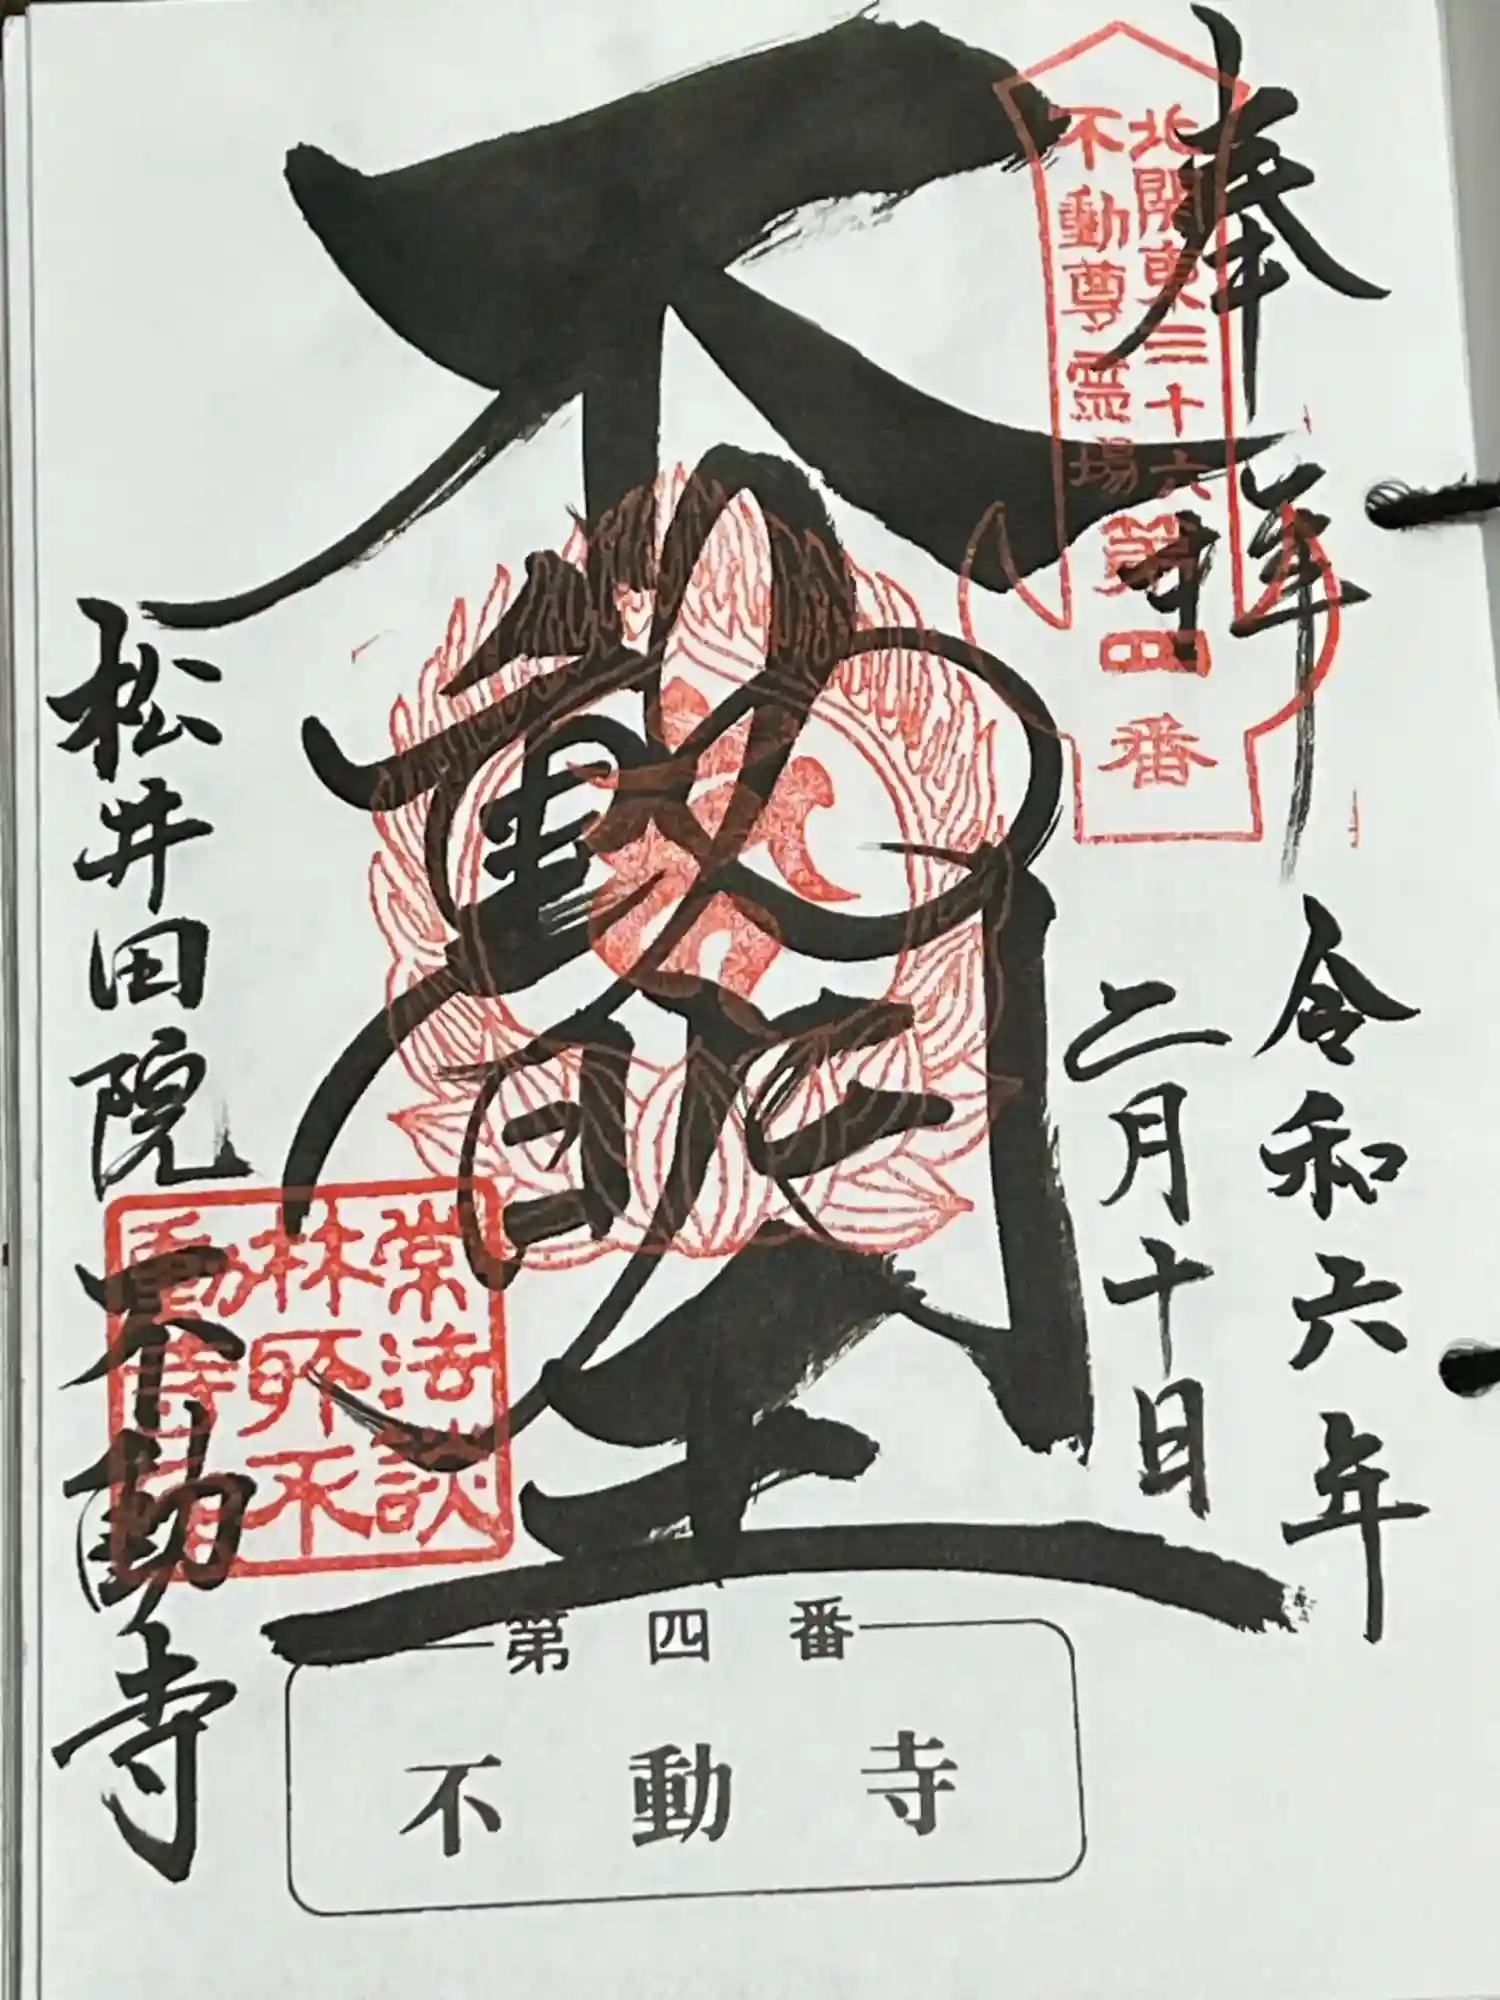 奉拝
北関東三十六
不動尊霊場
第四番
令和六年
二月十日
不動明王
松井田院
不動寺
常法談
林所不
動寺印
第四番
不動寺